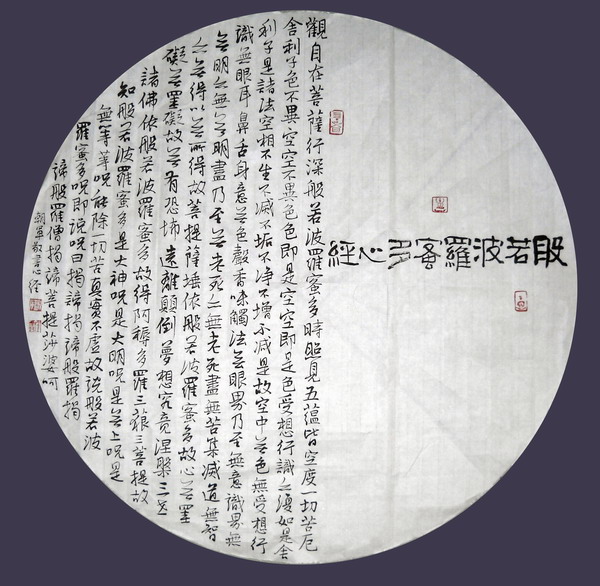 般若波羅蜜多心經
觀自在菩薩行深般若波羅蜜多時照見五蘊皆空度一切苦厄
舍利子色不異空空不異色色即是空空即是色受想行識亦復如是舍
利子是諸法空相不生不滅不垢不净不增不減是故空中无色無受想行
識無眼耳鼻舌身意无色聲香味觸法无眼界乃至無意識界無
无明亦無无明盡乃至无老死亦無老死盡無苦集滅道無智
亦无得以无所得故菩提薩埵依般若波羅蜜多故心无罣
礙无罣礙故无有恐怖遠離顛倒夢想究竟涅槃三世
諸佛依般若波羅蜜多故得阿耨多羅三藐三菩提故
知般若波羅蜜多是大神呪是大明呪是无上呪是
無等等呪能除一切苦真實不虛故說般若波
羅蜜多呪即說呪曰揭諦揭諦般羅揭
諦般羅僧揭諦菩提莎婆呵
朝軍敬書心經